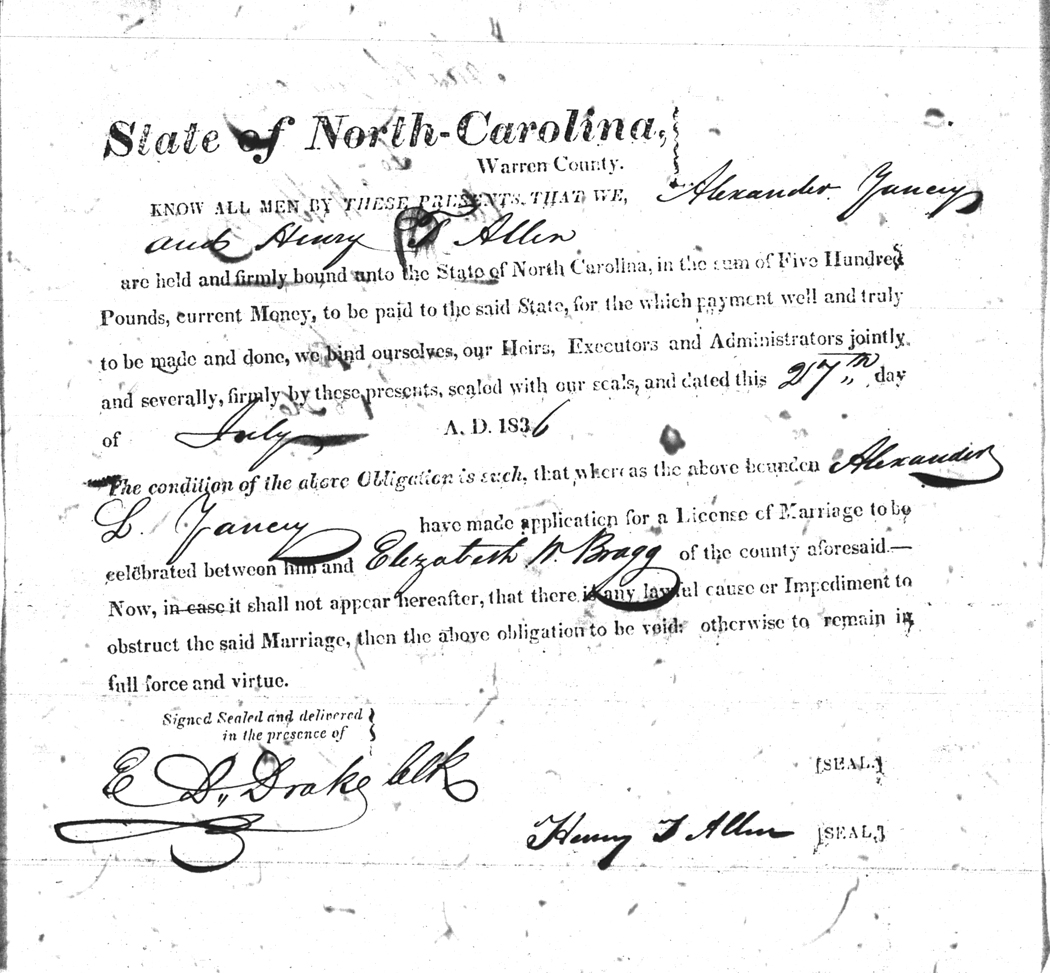 State of North-Carolina,
Warren County.
KNOW ALL MEN BY THESE PRESENTS, THAT WE, Alexander Yancey
and Henry F Allen
are held and firmly bound unto the State of North Carolina, in the sum of Five Hundred
Pounds, current Money, to be paid to the said State, for the which payment well and truly
to be made and done, we bind ourselves, our Heirs, Executors and Administrators jointly
and severally, firmly by these presents, sealed with our seals, and dated this 27th day
of July A. D. 1836
The condition of the above Obligation is such, that whereas the above bounden Alexander
L. Yancey have made application for a License of Marriage to be
celebrated between him and Elizabeth W. Bragg of the county aforesaid.—
Now, in case it shall not appear hereafter, that there is any lawful cause or Impediment to
obstruct the said Marriage, then the above obligation to be void: otherwise to remain in
full force and virtue.
Signed Sealed and delivered
in the presence of
E D. Drake Clk
[SEAL.]
Henry F Allen [SEAL]